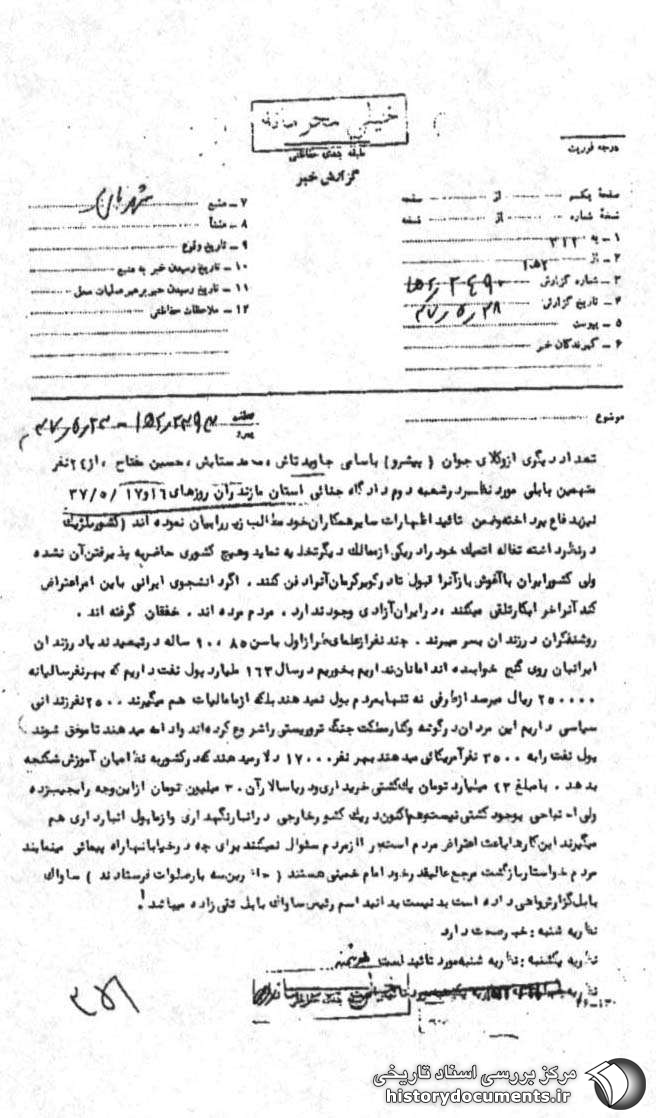 خیلی محرمانه
درجه فوریت
طبقه بندی حفاظتی
گزارش خبر
صفحهٔ یکم از صفحه
نسخهٔ شماره از نسخه
۱ ـ به ۳۱۲
۲ ـ از
۳ ـ شماره گزارش
۴ ـ تاریخ گزارش ۳۷/۵/۲۸
۵ ـ پیوست
۶ ـ گیرندگان خبر
۷ ـ منبع شهربانی
۸ ـ منشأ
۹ ـ تاریخ وقوع
۱۰ ـ تاریخ رسیدن خبر به منبع
۱۱ ـ تاریخ رسیدن خبر برهبر عملیات محل
۱۲ ـ ملاحظات حفاظتی
موضوع
تعداد دیگری ازوکلای جوان ( پیشرو) باسامی جاوید تاش ، محمد ستایش ، حسین فتاح ، از۲۴نفر
متهمین بابلی مورد نظردرشعبه دوم دادگاه جنائی استان مازندران روزهای ۱۶و۱۷ /۵/ ۳۷
نیزدفاع پرداخته وضمن تائید اظهارات سایرهمکاران خود مطالب زیررابیان نموده اند (کشوربلژیک
درنظرداشته تفاله اتمیک خود رادریکی ازممالک دیگرتخلیه نماید وهیچ کشوری حاضربه پذیرفتن آن نشده
ولی کشورایران باآغوش بازآنرا قبول تادرکویرکرمان آنرادفن کنند . اگردانشجوی ایرانی باین امراعتراض
کندآنراخرابکارتلقی میکنند ، درایران آزادی وجود ندارد ، مردم مرده اند . خفقان گرفته اند .
روشنفکران درزندان بسر میبرند . چند نفرازعلمای طرازاول باسن ۸۵ ، ۹۰ ساله درتبعید ند یادرزندان
ایرانیان روی گنج خوابیده اند امانان نداریم بخوریم درسال ۱۶۳ ملیارد پول نفت داریم که بهرنفرسالیانه
۲۵۰۰۰۰ ریال میرسد ازطرفی نه تنهابمردم پول نمید هند بلکه ازمامالیات هم میگیرند ۲۵۰۰نفرزندانی
سیاسی داریم این مردان درگوشه وکنارمملکت جنگ تروریستی راشروع کرده اند وادامه مید هند تاموفق شوند
پول نفت رابه ۳۵۰۰ نفرآمریکائی مید هند بهر نفر ۱۷۰۰۰ دلارمید هند که درکشوربه نظامیان آموزش شکنجه
بدهد . بامبلغ ۲۳ میلیارد تومان یک کشتی خریداری ودرپاسالارآن ۳۰ میلیون تومان ازاین وجه رابجیب زده
ولی اصلا کشتی بوجود نیست وهم اکنون دریک کشور خارجی درانبارنگهداری وازما پول انبارداری هم
میگیرند این کارهاباعث اعتراض مردم است چرا ازمردم سئوال نمیکنند برای چه درخیابانهاراه پیمائی مینمایند
مردم خواستاربازگشت مرجع عالیقد رخود امام خمینی هستند ( حاضرین سه بارصلوات فرستادند ) ساواک
بابل گزارش واهی داده است بد نیست بدانید اسم رئیس ساواک بابل تقی زاده میباشد !
نظریه شنبه : خبر صحت دارد
نظریه یکشنبه : نظریه شنبه مورد تائید است.
۳۷۶
مرکز بررسی اسناد تاریخی
historydocuments.ir